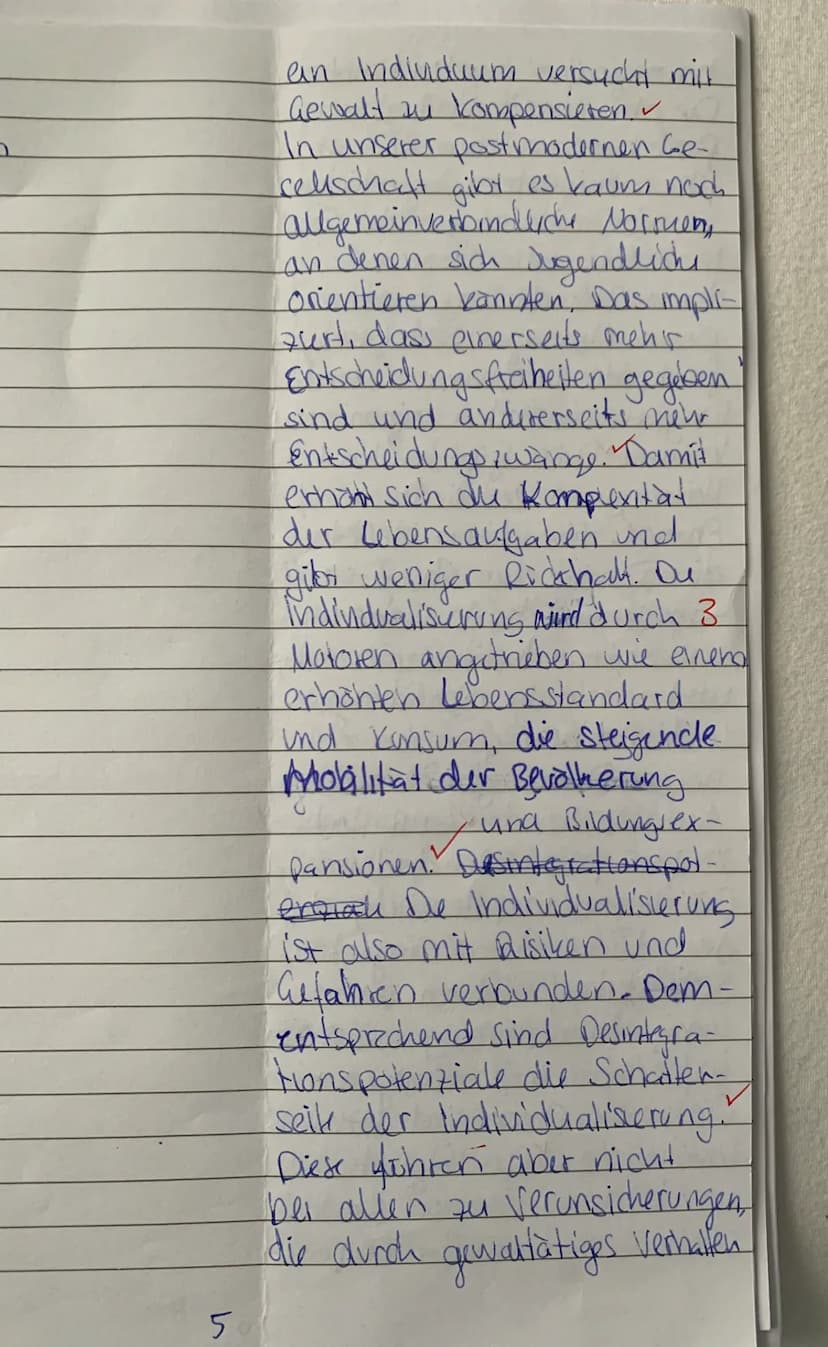 ein Individuum versucht mit
Gewalt zu kompensieren. ✓
In unserer postmodernen Ge-
sellschaft gibt es kaum noch
allgemeinverbindliche Normen,
an denen sich Jugendliche
orientieren könnten. Das impli-
ziert, dass einerseits mehr
Entscheidungsfreiheiten gegeben
sind und andererseits mehr
Entscheidungszwänge. ✓ Damit
erhöht sich die Komplexität
der Lebensaufgaben und
gibt weniger Rückhalt. Die
Individualisierung wird durch 3
Motoren angetrieben wie einem
erhöhten Lebensstandard
und Konsum, die steigende
Mobilität der Bevölkerung
und Bildungsex-
pansionen. ✓ Desintegrationspol-
Die Individualisierung
ist also mit Risiken und
Gefahren verbunden. Dem-
entsprechend sind Desintegra-
tionspotenziale die Schatten-
seite der Individualisierung. ✓
Diese führen aber nicht
bei allen zu Verunsicherungen,
die durch gewalttätiges Verhalten
5